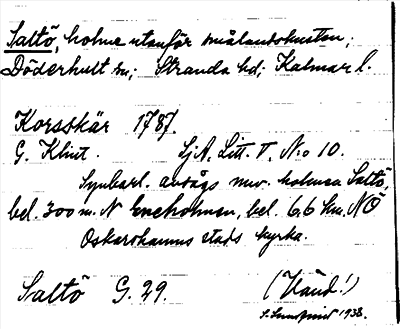 Saltö, holme utanför smålandskusten;
Döderhult sn; Stranda hd; Kalmar l.
Korsskär 1787.
G. Klint. SjA. Litt. T, N:o 10.
Synbarl. avsågs nuv. holmen Saltö,
bel. 300 m. N Eneholmen, bel. 6,6 km. NÖ
Oskarshamns stads kyrka.
Saltö G. 29. (Känd!)
1938.